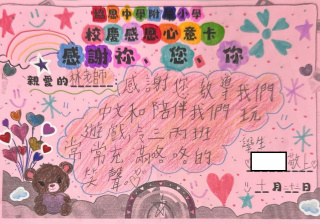 協恩中學附屬小學
校慶感恩心意卡
感謝祢、您、你
親愛的林老師:
感謝你教導我們
中文和陪伴我們玩
遊戲令三丙班
常常充滿咯咯的
笑聲
學生
十月
日